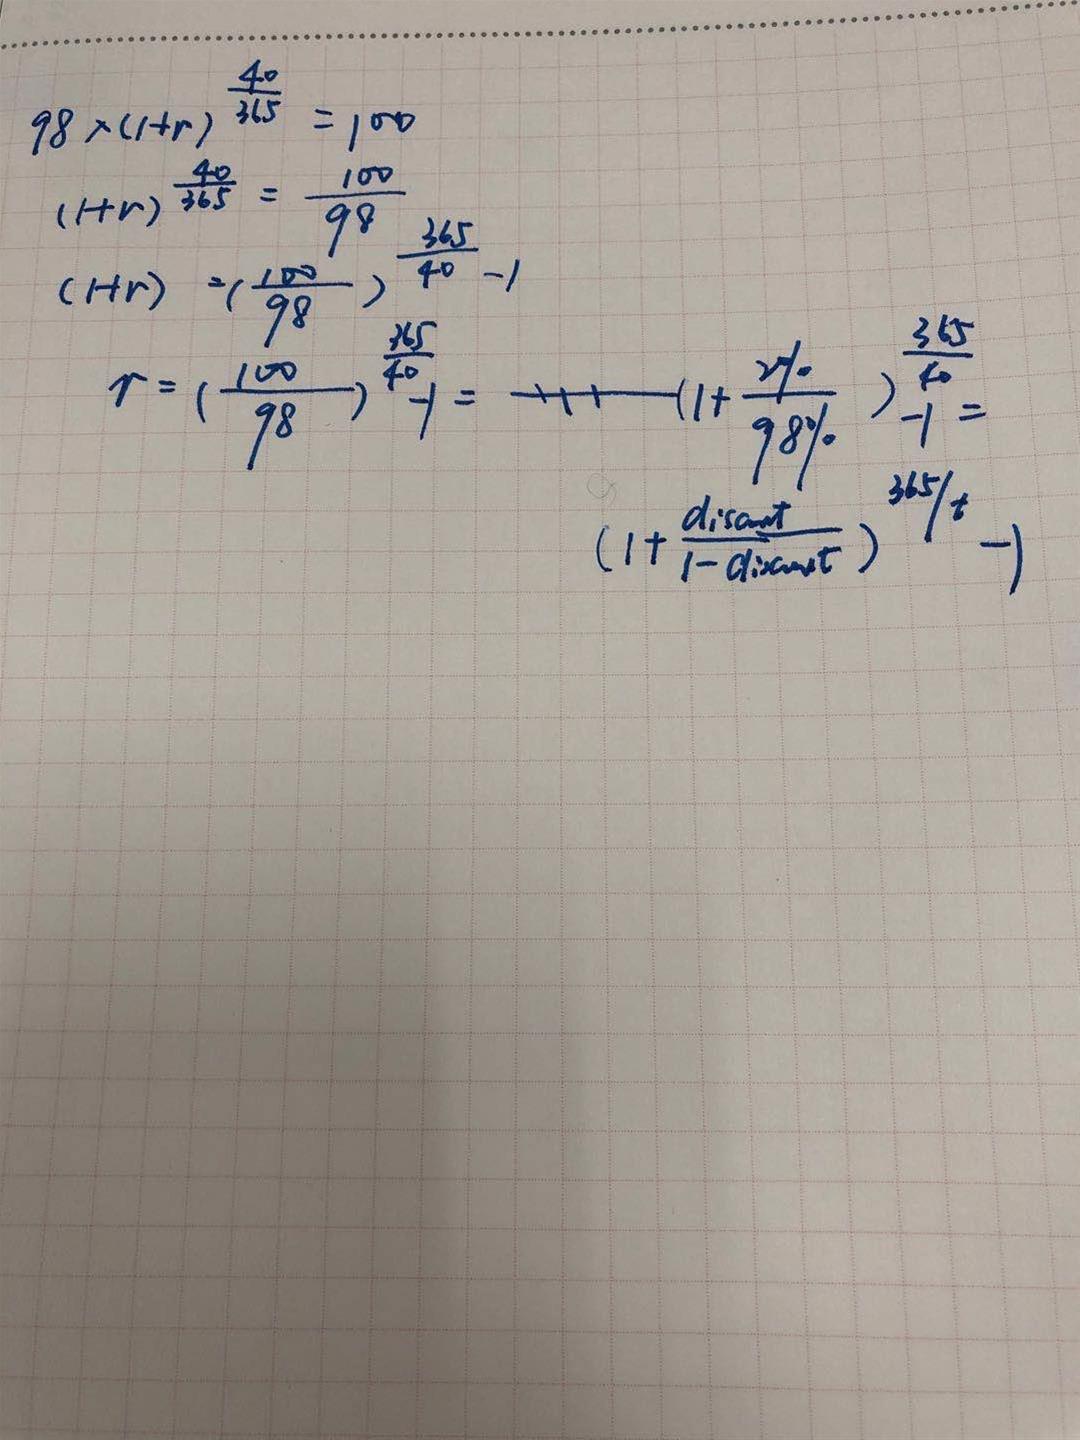 98×(1+r)^(40/365) = 100
(1+r)^(40/365) = 100/98
(1+r) = (100/98)^(365/40) -1
r = (100/98)^(365/40) -1 = (1+ 2%/98%)^(365/40) -1 =
(1+ discount/1-discount)^(365/t) -1